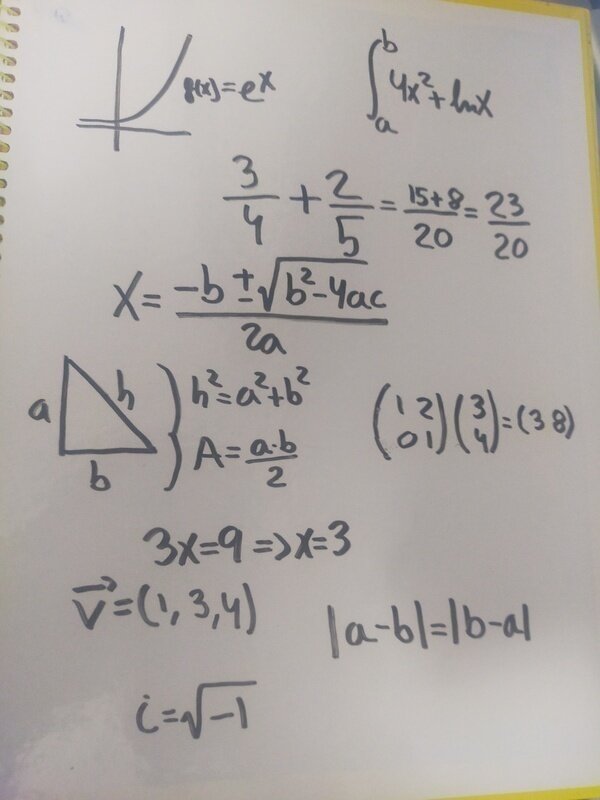 f(x)=eˣ
∫ₐᵇ 4x²+lnx
3/4 + 2/5 = 15+8/20 = 23/20
X= -b ± √b²-4ac / 2a
a h b } h²=a²+b²
A= a·b/2
(1 2 0 1)(3 4)=(3 8)
3x=9 => x=3
v⃗=(1, 3, 4)
|a-b|=|b-a|
i=√-1